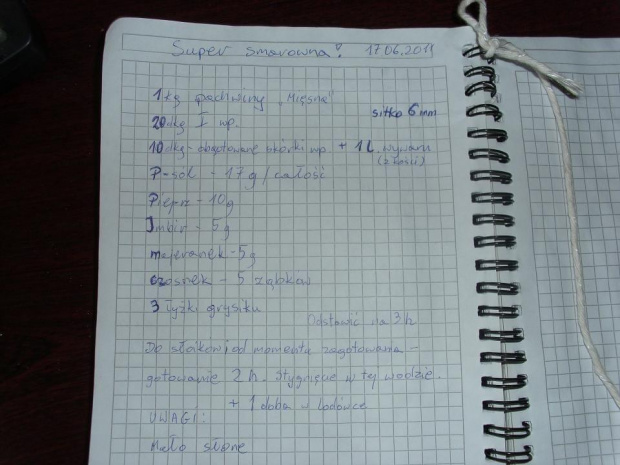 Super smarowna! 17.06.2011
1kg pachwiny „Mięsna"
sitko 6mm
20dkg I wp.
10dkg - obgotowane skórki wp. + 1L wywaru
P-sól - 17g/całość
Pieprz - 10g
Imbir - 5g
majeranek - 5g
czosnek - 5 ząbków
3 łyżki grysiku
Odstawić na 3h
Do słoików, od momentu zagotowania -
gotowanie 2h. Stygnięcie w tej wodzie.
+ 1 doba w lodówce
UWAGI:
Mało słone